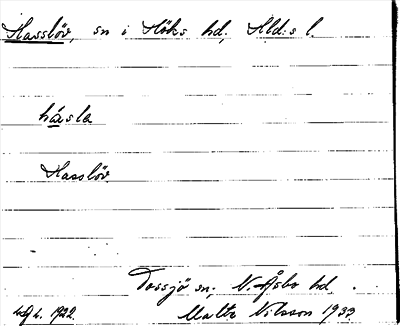 Hasslöv, sn i Höks hd, Hld:s l.
hásla
Hasslöv
Tossjö sn, N. Åsbo hd.
1922. Malte Nilsson 1932